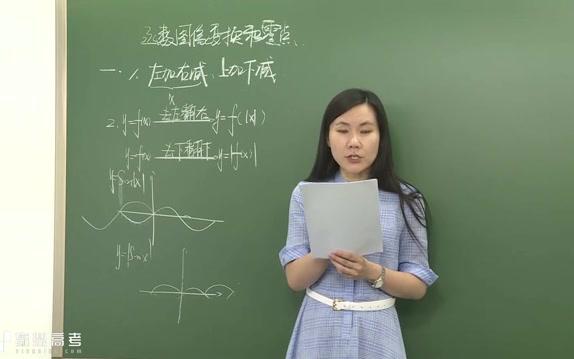 函数图像变换和零点
一. 1. 左加右减, 上加下减
x
2. y=f(x) 去左翻右 y=f(|x|)
y=f(x) 去下翻上 y=|f(x)|
y=sin|x|
y=|sinx|
高考